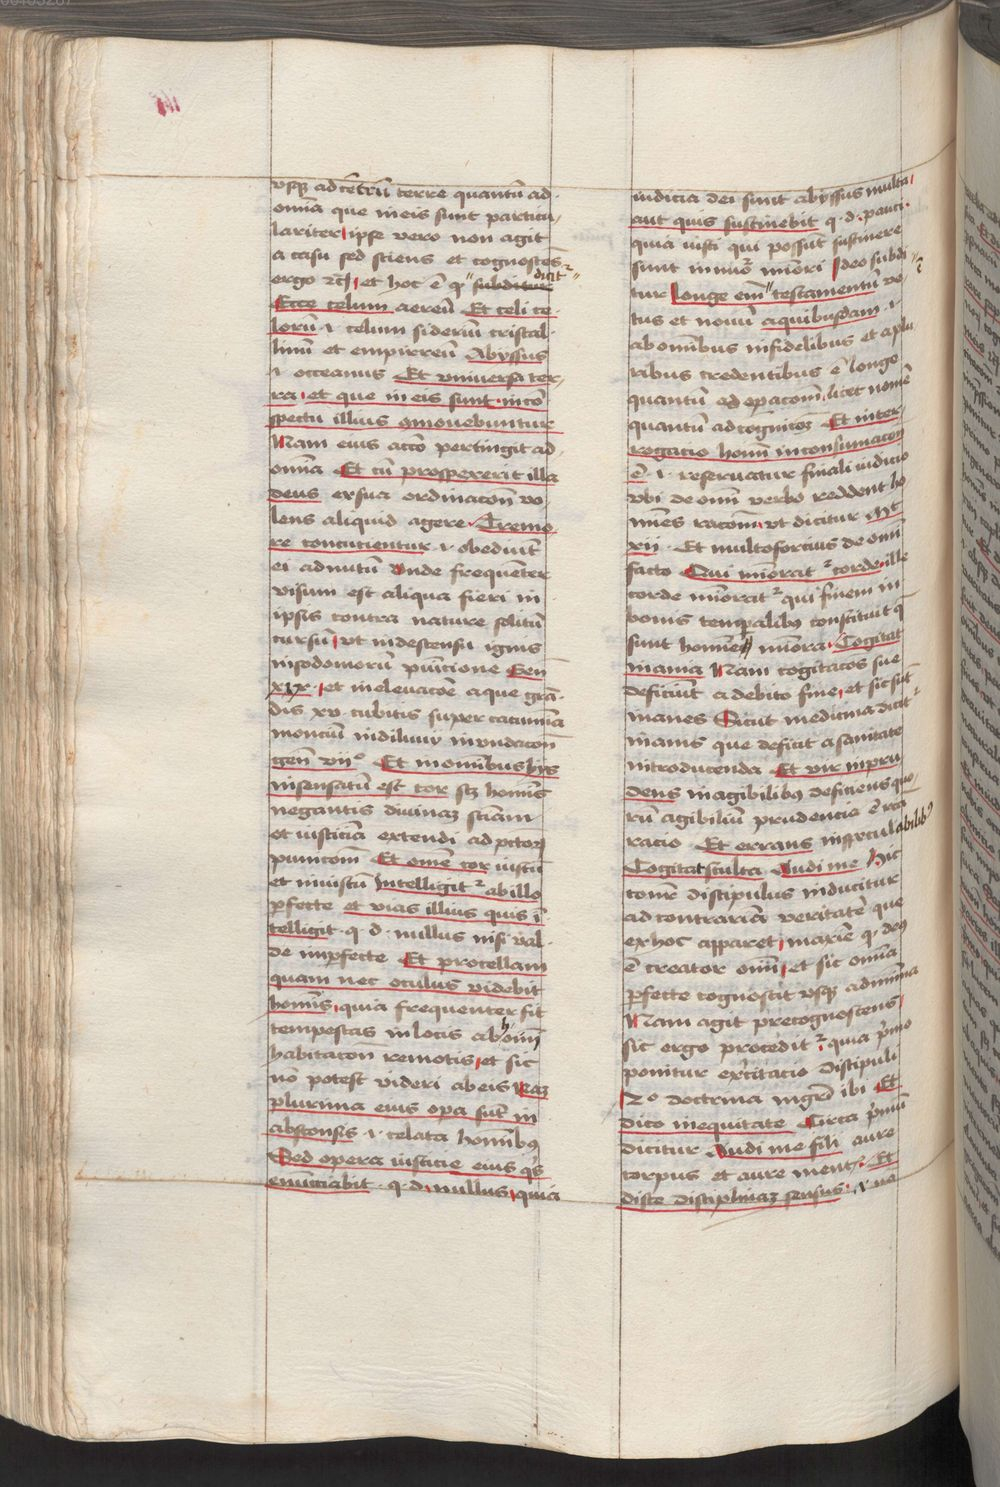 vsq3 ad cētrū terre quantū ad
om̄ia que in eis sunt particu
lariter ipse vero non agit
a casu sed sciens et cognoscēs
ergo et hoc ē q subditur dicit
Ecce celum aereū Et celi ce
lorū .i. celum sideriū cristal
linū et empirreū Abyssus
.i. occeanus Et vniuersa ter
ra et que in eis sunt in cō
spectu illius comouebuntur
Nam eius actō pertingit ad
om̄ia Et cū prospexerit illa
deus ex sua ordinacōn vo
lens aliquid agere Tremo
re concucientur .i. obediūt
ei ad nutū Vnde frequēter
visum est aliqua fieri in
ipsis contra nature solitū
cursū vt in descensu ignis
in sodomorū pūicione Gen̄
xix et in eleuacōe aque grā
dis xv cubitis super cacumīa
monciū in diluuij inundacōn
gen̄ vii° Et in om̄ibus hijs
insensatū est cor s3 hoīnis
negantis diuinaȝ sciam
et iusticiā extendi ad pctorȝ
punicōm Et om̄e cor iustū
et iniustū intelligit ab illo
ꝑfecte et vias illius quis ī
telligit q. d. nullus nisi val
de impfecte Et procellam
quam nec oculus videbit
hoīnis quia frequenter fit
tempestas in locis ab hoīm
habitacōn remotis et sic
nō potest videri ab eis Nā
plurima eius opa sūt in
absconsis .i. celata hoīnibꝰ
Sed opera iusticie eius q̄s
enūciabit q. d. nullus quia
iudicia dei sunt abyssus multa
aut quis sustinebit q. d. pauci
quia iusti qui possūt sustinere
sunt in minori Ideo subdi
tur Longe em̄ testamentū ve
tus et nouū a quibusdam .i.
ab om̄ibus infidelibus et a plu
ribus credentibus ē longe
quantū ad opacōm licet non
quantū ad cognicōȝ Et inter
rogacio hoīm in consumacōn
ē .i. reseruatur finali iudicio
vbi de om̄i verbo reddent ho
mīes racōm vt dicitur Mt
xij Et multo forcius de om̄i
facto Qui minorat corde ille
corde minorat qui finem in
bonis tempalibꝰ constituit q̄
sunt homīe minora Cogitat
inania Nam cogitacōs sue
deficiūt a debito fine et sic sūt
inanes Sicut medicina dicit
inanis que deficit a sanitate
introducenda Et vir inpru
dens in agibilibꝰ deficiens quo
rū agibiliū prudencia ē rca
racio Et errans in speculabilibꝰ
Cogitat stulta Audi me hic
tom̄ discipulus inducitur
ad contrariā veritatē que
ex hoc apparet maxīe q deꝰ
ē creator om̄i et sic om̄ia
ꝑfecte cognoscit vsq3 ad minīa
Nam agit precognoscens
sic ergo procedit quia pīmo
ponitur excitacio discipuli
2° doctrina ingerē ibi Et
dico in equitate Circa pīmū
dicitur Audi me fili aure
corpus et aure ment Et
disce disciplinaȝ sensus